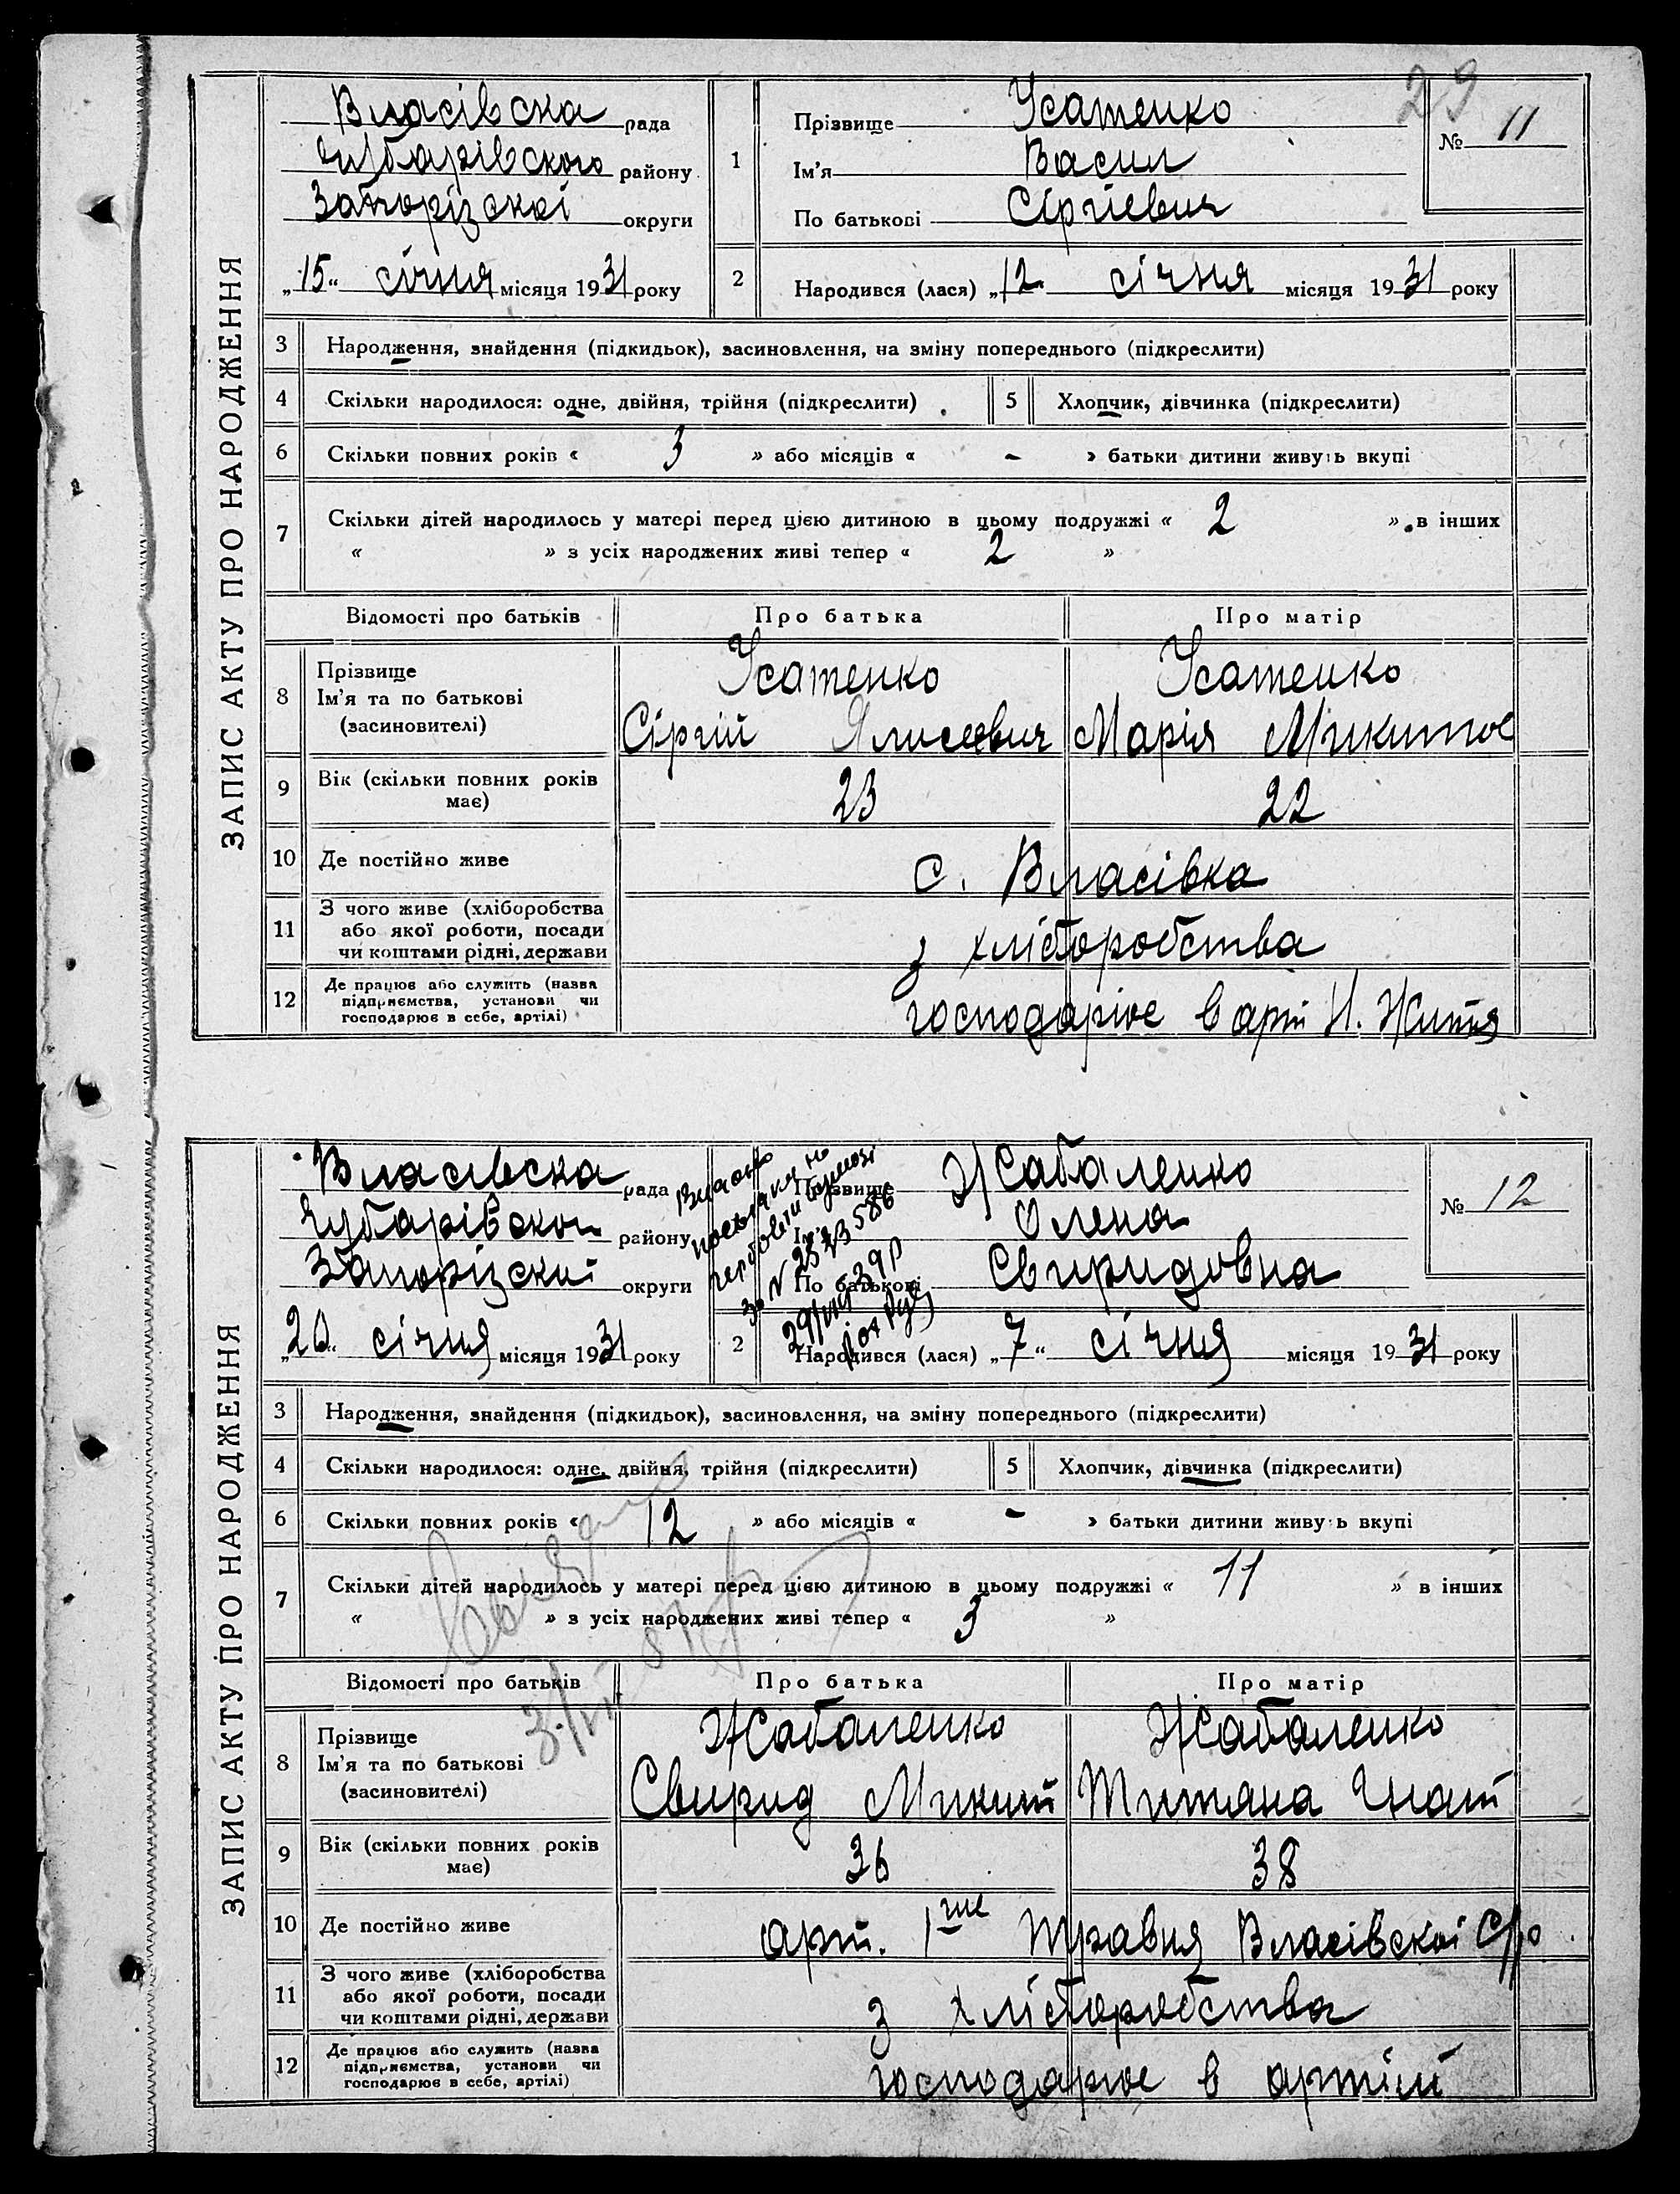 29
ЗАПИС АКТУ ПРО НАРОДЖЕННЯ
Власівска рада
Чубарівского району
Запорізскоі округи
„15“ січня місяця 1931 року
1
Прізвище Усатенко
Ім'я Васил
По батькові Сіргієвич
№ 11
2
Народився (лася) „12 січня місяця 1931 року
3 Народження, знайдення (підкидьок), засиновлення, на зміну попереднього (підкреслити)
4 Скільки народилося: одне, двійня, трійня (підкреслити) 5 Хлопчик, дівчинка (підкреслити)
6 Скільки повних років « 3 » або місяців « - » батьки дитини живуть вкупі
7 Скільки дітей народилось у матері перед цією дитиною в цьому подружжі « 2 » в інших
« » з усіх народжених живі тепер « 2 »
Відомості про батьків Про батька Про матір
8 Прізвище
Ім'я та по батькові
(засиновителі)
Усатенко Усатенко
Сіргій Ялисеєвич Марія Микитов
9 Вік (скільки повних років
має)
23 22
10 Де постійно живе с. Власівка
11 З чого живе (хліборобства
або якої роботи, посади
чи коштами рідні, держави
з хліборобства
12 Де працює або служить (назва
підприємства, установи чи
господарює в себе, артілі)
господарює в арт Н. Життя
ЗАПИС АКТУ ПРО НАРОДЖЕННЯ
Власівска рада
Чубарівскоі району
Запорізскиі округи
„20“ січня місяця 1931 року
Прізвище Жабаленко
Ім'я Олена
По батькові Свиридовна
№ 12
2
Народився (лася) „7“ січня місяця 1931 року
Видано
29/VIII 39 р
3 Народження, знайдення (підкидьок), засиновлення, на зміну попереднього (підкреслити)
4 Скільки народилося: одне, двійня, трійня (підкреслити) 5 Хлопчик, дівчинка (підкреслити)
6 Скільки повних років « 12 » або місяців « - » батьки дитини живуть вкупі
7 Скільки дітей народилось у матері перед цією дитиною в цьому подружжі « 11 » в інших
« » з усіх народжених живі тепер « 3 »
Відомості про батьків Про батька Про матір
8 Прізвище
Ім'я та по батькові
(засиновителі)
Жабаленко Жабаленко
Свирид Микит Титяна Гнат
9 Вік (скільки повних років
має)
36 38
10 Де постійно живе арт. 1ше Травня Власівскоі С/р
11 З чого живе (хліборобства
або якої роботи, посади
чи коштами рідні, держави
з хліборобства
12 Де працює або служить (назва
підприємства, установи чи
господарює в себе, артілі)
господарює в артілі